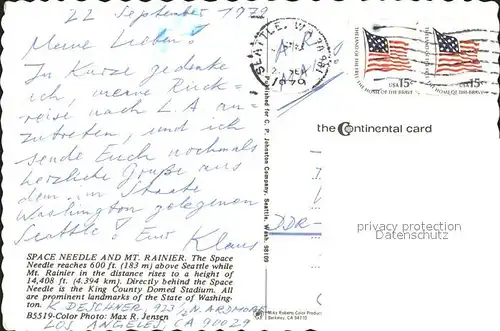 22 September 1979
Meine Lieben!
In Kürze gedenke
ich, meine Rück-
reise nach L A an-
zutreten, und ich
sende Euch nochmals
herzliche Grüße aus
dem im Staate
Washington gelegenen
Seattle! Euer Klaus
SPACE NEEDLE AND MT. RAINIER. The Space
Needle reaches 600 ft. (183 m) above Seattle while
Mt. Rainier in the distance rises to a height of
14,408 ft. (4.394 km). Directly behind the Space
Needle is the King County Domed Stadium. All
are prominent landmarks of the State of Washing-
ton.
B5519-Color Photo: Max R. Jensen
K DESCHNER 923½ N. ARDMORE
LOS ANGELES, CA 90029
Published for C. P. Johnston Company, Seattle, Wash. 98109
SEATTLE, WA
1979
THE LAND OF THE FREE
USA 15c
THE HOME OF THE BRAVE
THE LAND OF THE FREE
USA 15c
THE HOME OF THE BRAVE
the Continental card
DDR-
privacy protection
Datenschutz
Mike Roberts Color Productions
Berkeley, CA 94710